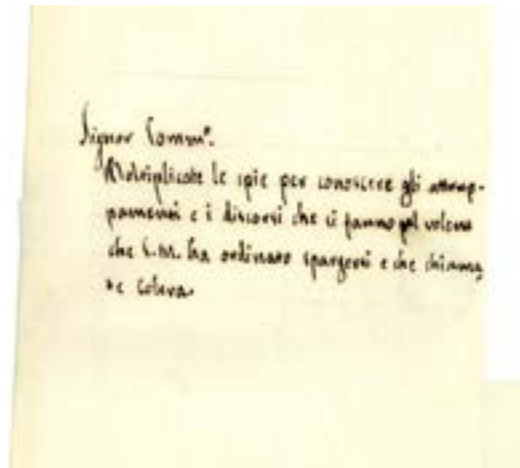 Signor Comm.º
Moltiplicate le spie per conoscere gli attrup-
pamenti e i discorsi che si fanno pel veleno
che S.M. ha ordinato spargersi e che chiama
te Colera.